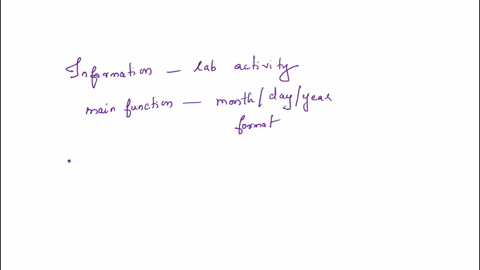 Information — lab activity
main function — month/day/year
format